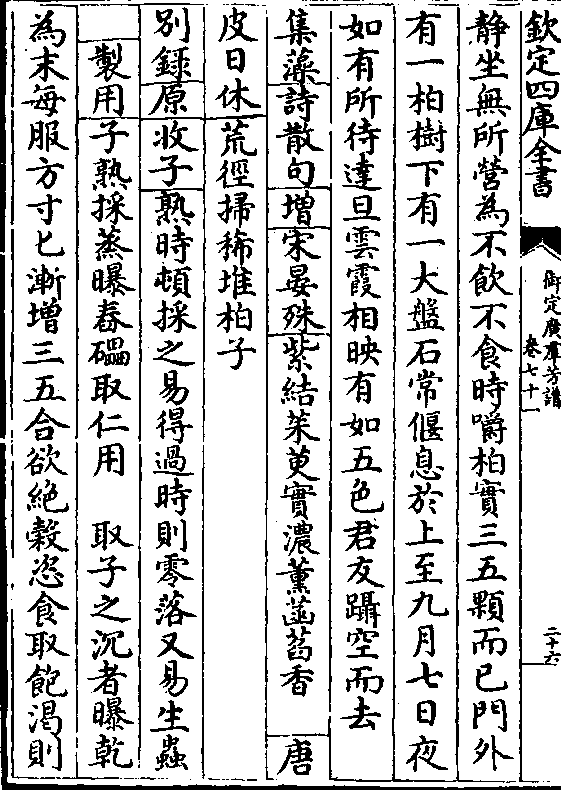 欽定四庫全書
御定廣羣芳譜
卷七十一
二十六
静坐無所營為不飲不食時嚼柏實三五顆而已門外
有一柏樹下有一大盤石常偃息於上至九月七日夜
如有所待達旦雲霞相映有如五色君友躡空而去
集藻詩散句增宋晏殊紫結茱萸實濃薰菡萏香 唐
皮日休荒徑掃稀堆柏子
別録原收子熟時頓採之易得過時則零落又易生蟲
製用子熟採蒸曝舂礌取仁用 取子之沉者曝乾
為末每服方寸匕漸增三五合欲絶穀恣食取飽渴則